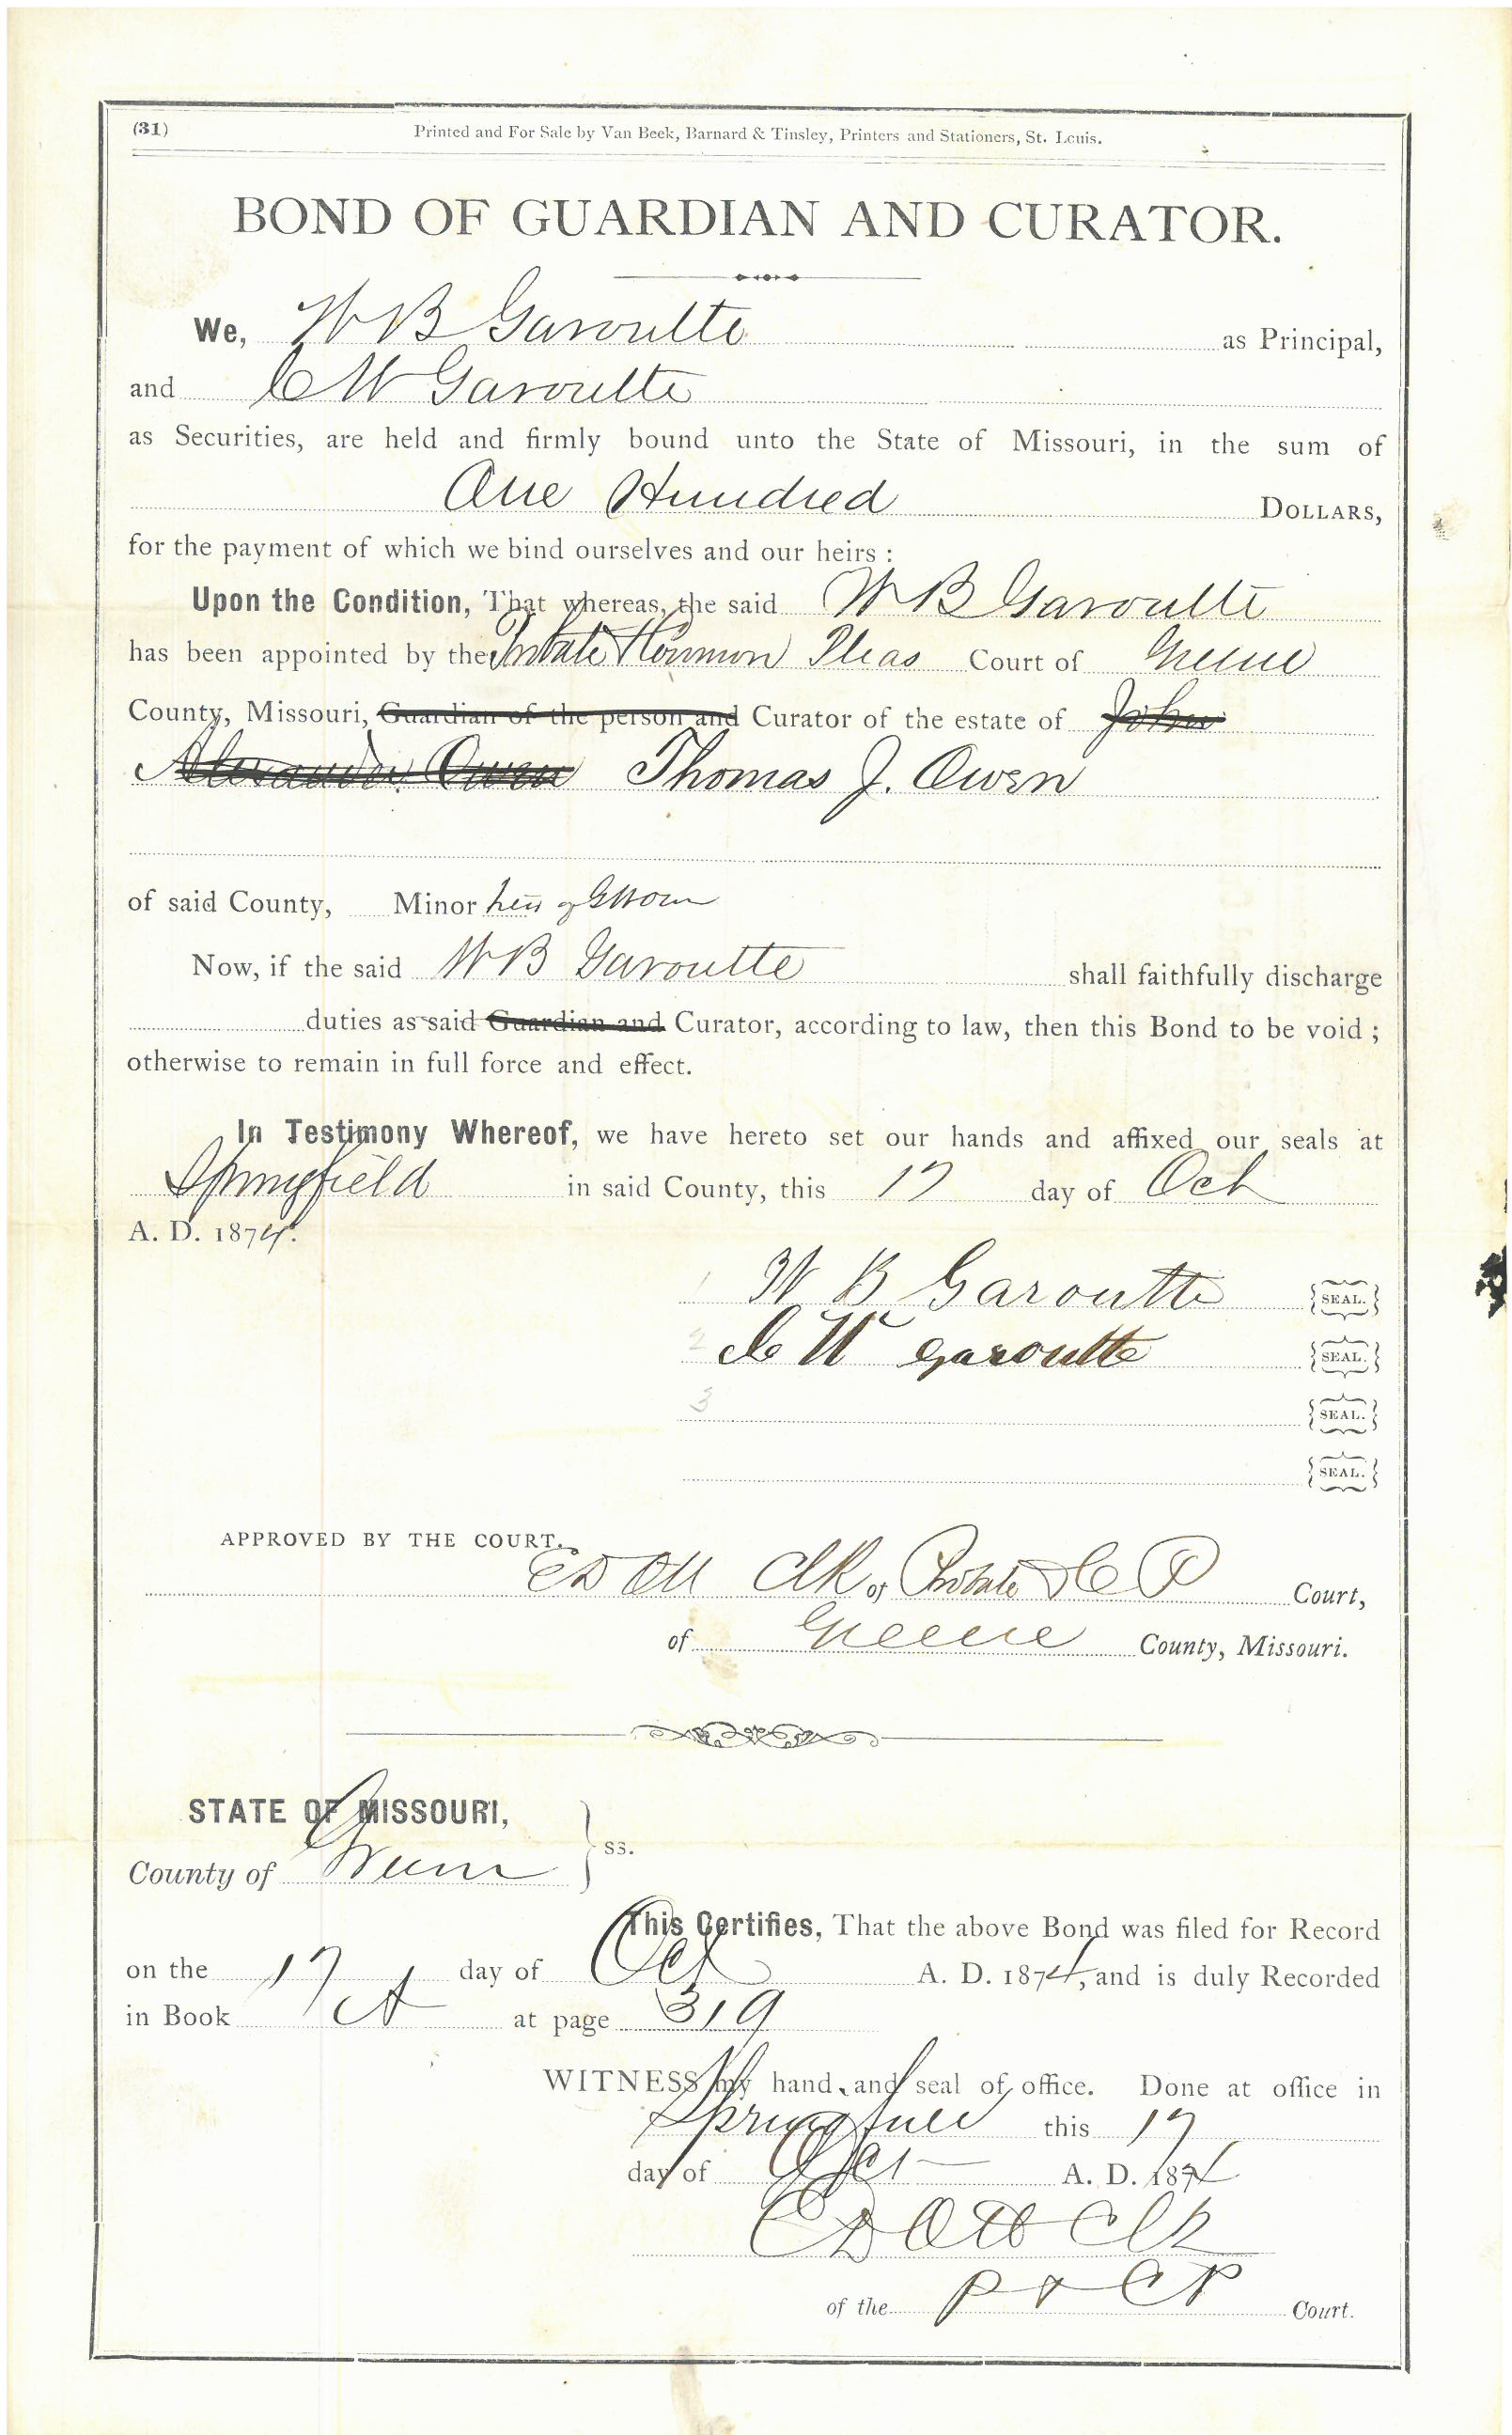 (31) Printed and For Sale by Van Beek, Barnard & Tinsley, Printers and Stationers, St. Louis.
BOND OF GUARDIAN AND CURATOR.
We, W B Garoutte as Principal,
and C W Garoutte
as Securities, are held and firmly bound unto the State of Missouri, in the sum of
One Hundred DOLLARS,
for the payment of which we bind ourselves and our heirs :
Upon the Condition, That whereas, the said W B Garoutte
has been appointed by the Probate & Common Pleas Court of Greene
County, Missouri, Guardian of the person and Curator of the estate of John
Alexander Owen Thomas J. Owen
of said County, Minor heir of
Now, if the said W B Garoutte shall faithfully discharge
duties as said Guardian and Curator, according to law, then this Bond to be void ;
otherwise to remain in full force and effect.
In Testimony Whereof, we have hereto set our hands and affixed our seals at
Springfield in said County, this 17 day of Oct
A. D. 1874.
1 W B Garoutte SEAL.
2 C W Garoutte SEAL.
3 SEAL.
SEAL.
APPROVED BY THE COURT.
E D Ott Clk of Probate & C P Court,
of Greene County, Missouri.
STATE OF MISSOURI,
County of Greene ss.
This Certifies, That the above Bond was filed for Record
on the 17 day of Oct A. D. 1874, and is duly Recorded
in Book A at page 319
WITNESS my hand and seal of office. Done at office in
Springfield this 17
day of Oct A. D. 1874
E D Ott Clk
of the P & C P Court.